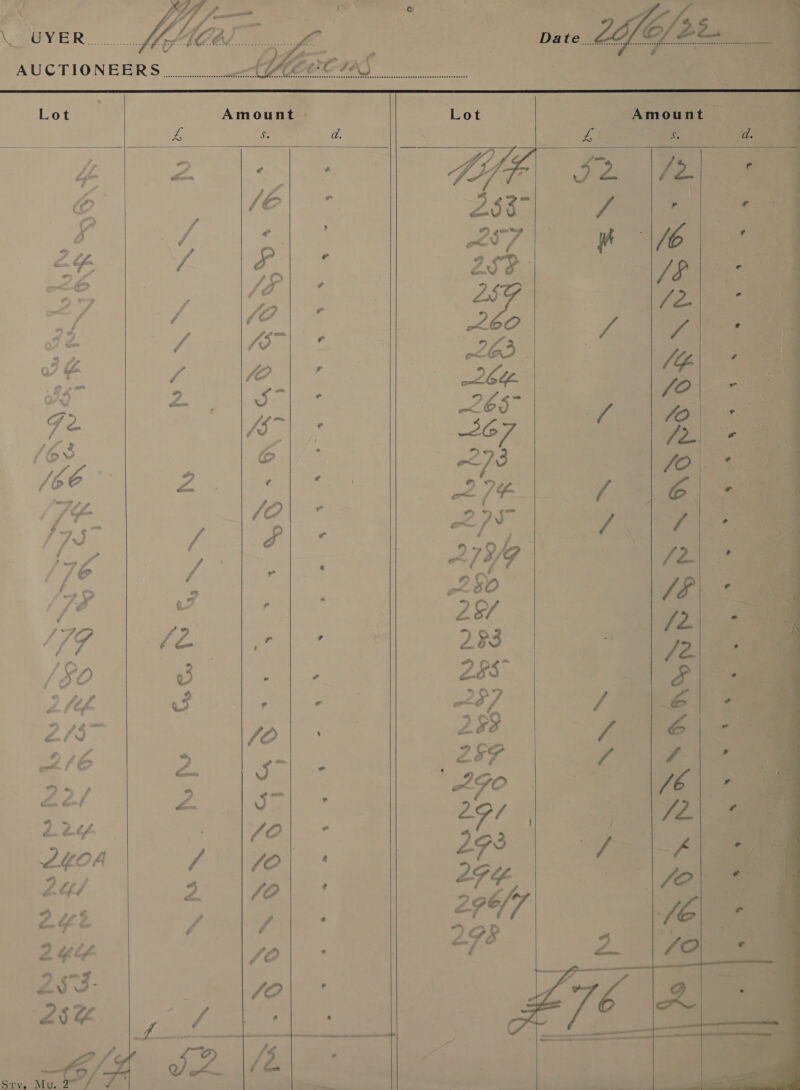 UYER Date 20/6/22
AUCTIONEERS Stevens
Lot Amount Lot Amount
£ s. d. £ s. d.
4 2 . . B/F 52 12 .
6 16 . 255 1 . .
8 1 . . 257 16 .
24 1 8 . 258 18 .
26 18 . 259 12 .
27 1 10 . 260 1 1 .
32 1 15 . 263 14 .
34 1 10 . 264 10 .
35 2 5 . 265 1 10 .
92 15 . 267 12 .
163 6 . 273 10 .
166 2 . . 274 1 6 .
174 10 . 275 1 1 .
175 1 8 . 278/9 12 .
176 1 . . 280 18 .
178 3 . . 281 12 .
179 12 . . 283 12 .
180 3 . . 285 8 .
214 3 . . 287 1 6 .
215 10 . 288 1 6 .
216 2 5 . 289 1 1 .
221 2 5 . 290 16 .
224 10 . 291 12 .
240A 1 10 . 293 1 1 .
241 2 10 . 294 10 .
242 1 1 . 296/7 16 .
244 10 . 298 2 10 .
253 10 . £76 2 .
254 1 . .
C/F 52 12 .
Srv. Mu. 2